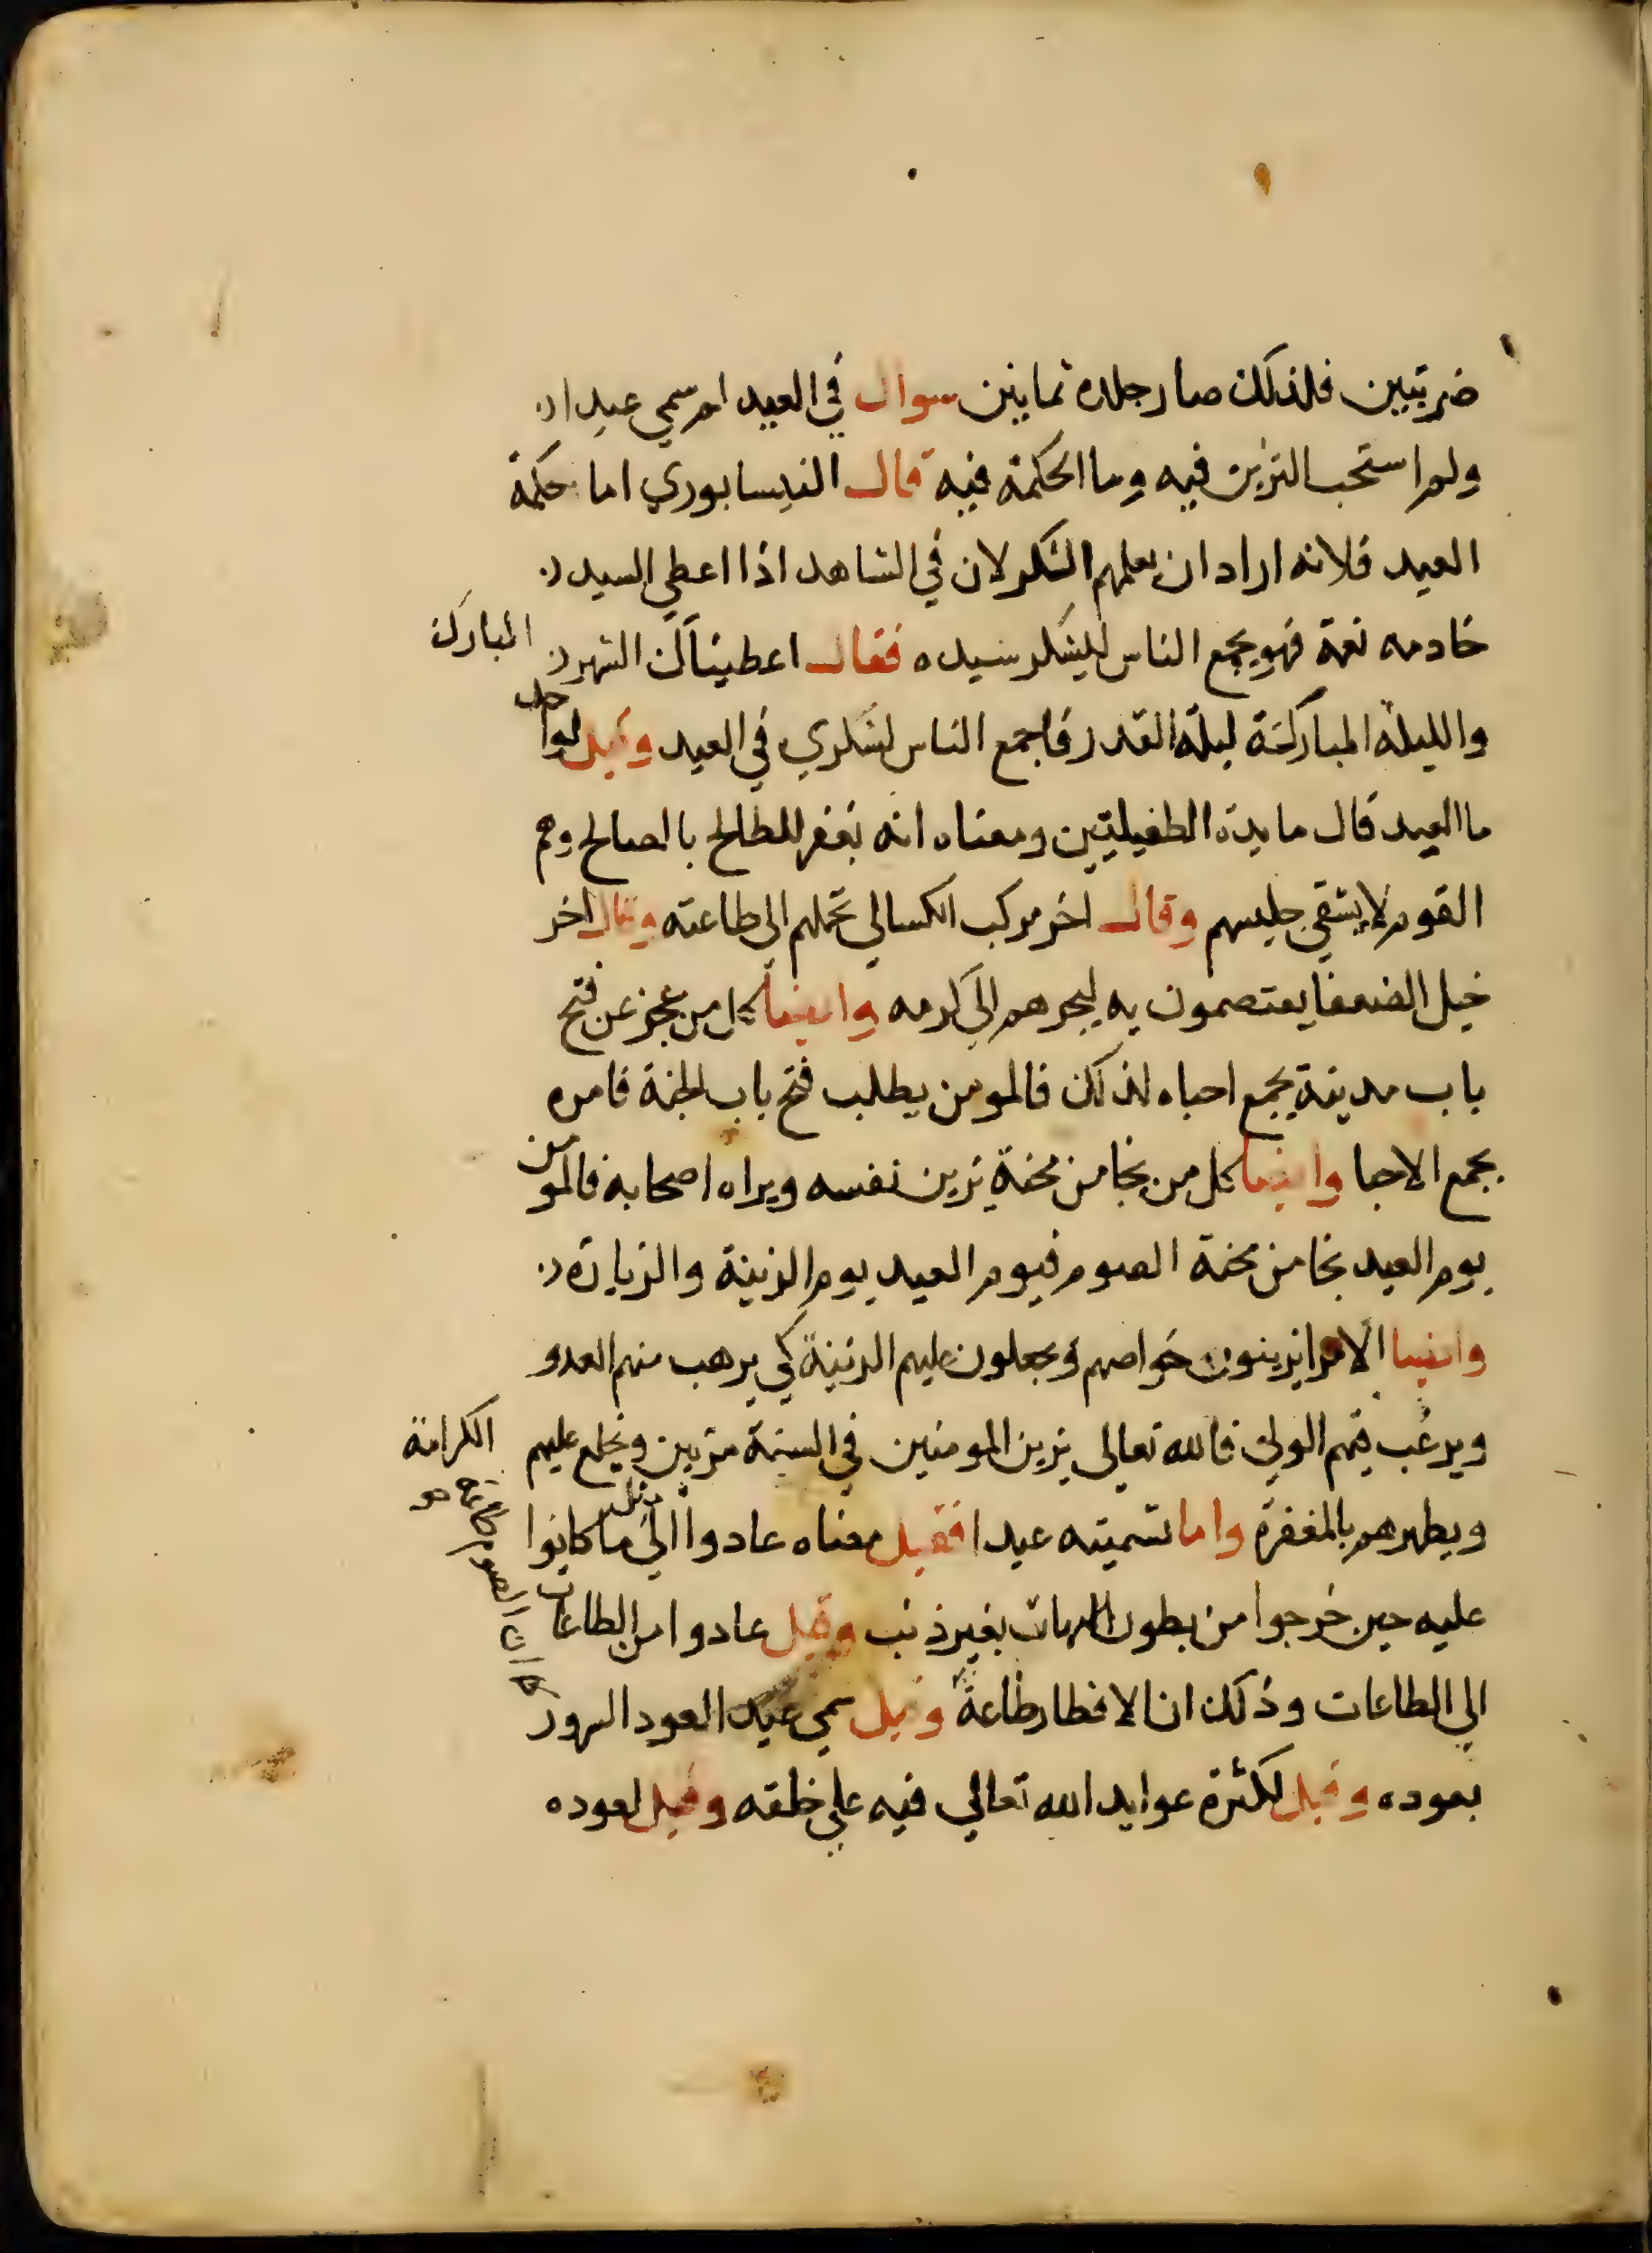 ضربتين فلذلك صار جلده ثمانين سوال في العيد لم سمي عيدا
ولم استحب التزين فيه وما الحكمة فيه قال النيسابوري اما حكمة
العيد فلانه اراد ان يعلمهم الشكر لان في الشاهد اذا اعطي السيد
خادمه نعمة فهو يجمع الناس ليشكر سيده فقال اعطيناك الشهر المبارك
والليلة المباركة ليلة القدر فاجمع الناس لشكري في العيد وقيل لواحد
ما العيد قال مايدة الطفيليين ومعناه انه يغفر للطالح بالصالح وهم
القوم لا يشقي جليسهم وقال اخر مركب الكسالي تحملهم الي طاعته وقال اخر
خيل الضعفا يعتصمون به ليجرهم الي كرمه وايضا كل من عجز عن فتح
باب مدينة يجمع احباه لذلك فالمومن يطلب فتح باب الجنة فامره
بجمع الاحبا وايضا كل من نجا من محنة تزين نفسه ويراه اصحابه فالمومن
يوم العيد نجا من محنة الصوم فيوم العيد يوم الزينة والزيارة
وايضا الامرا يزينون خواصهم ويجعلون عليهم الزينة كي يرهب منهم العدو
ويرغب فيهم الولي فالله تعالي يزين المومنين في السنة مرتين ويخلع عليهم الكرامة
ويطهرهم بالمغفرة واما تسميته عيدا فقيل معناه عادوا الي مثل ما كانوا
عليه حين خرجوا من بطون الامهات بغير ذنب وقيل عادوا من الطاعات
الي الطاعات وذلك ان الافطار طاعة وقيل سمي عيد العود السرور
بعوده وقيل لكثرة عوايد الله تعالي فيه علي خلقه وقيل لعوده
كما ان الصوم طاعة